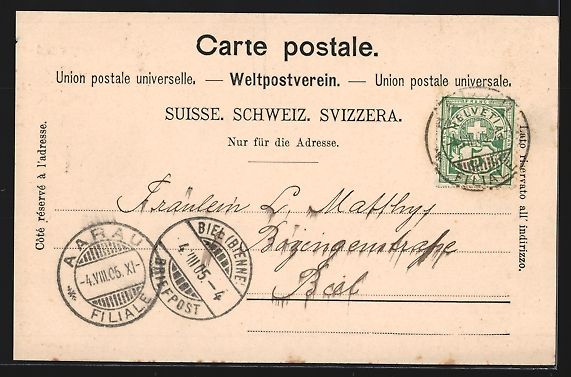 Carte postale.
Union postale universelle. — Weltpostverein. — Union postale universale.
SUISSE. SCHWEIZ. SVIZZERA.
Nur für die Adresse.
Côté réservé à l'adresse.
Lato riservato all' indirizzo.
HELVETIA
5
FILIALE
Fräulein L. Matthys
Bözingenstraße
Biel
AARAU
-4.VIII.05.XI-
FILIALE
BIEL (BIENNE)
4.VIII.05.-4
BRIEFPOST